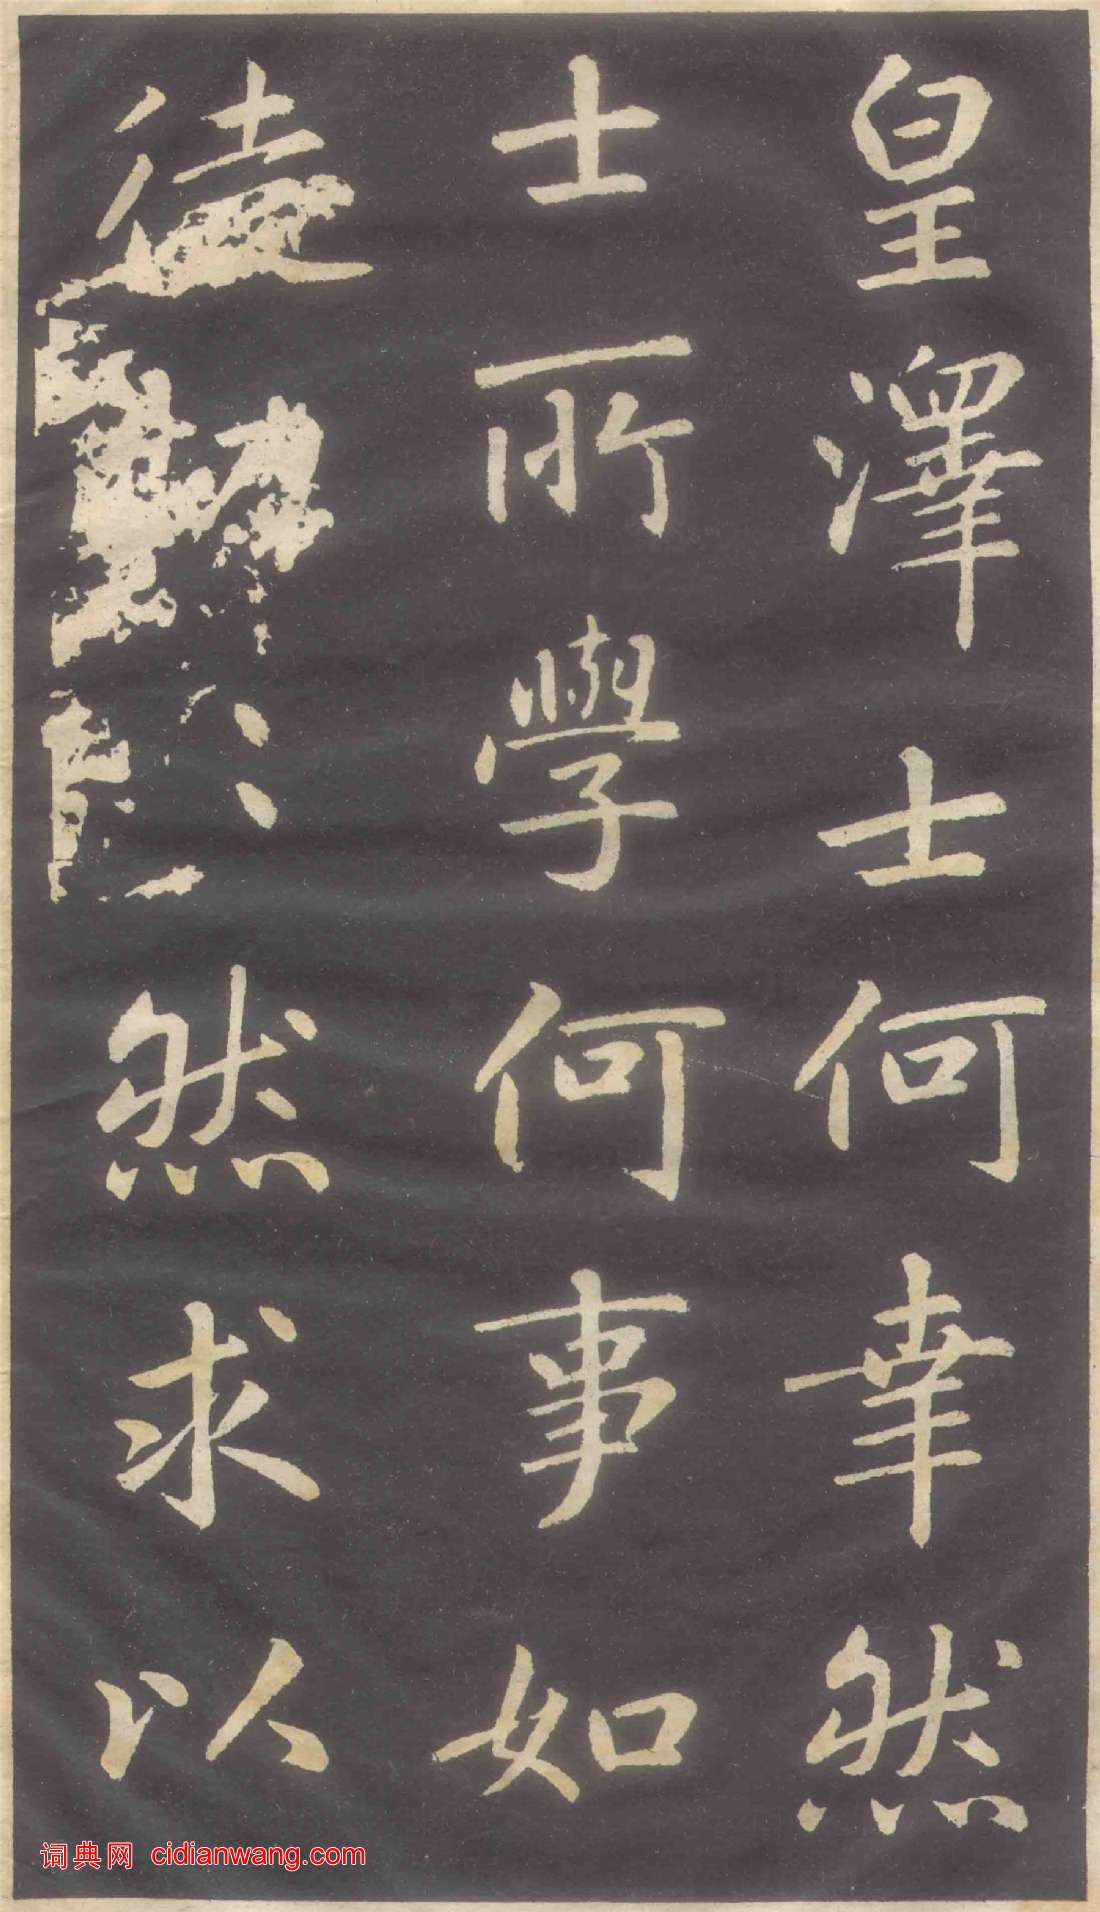 皇澤士何幸然
士所學何事如
徒
然求以
词典网 cidianwang.com